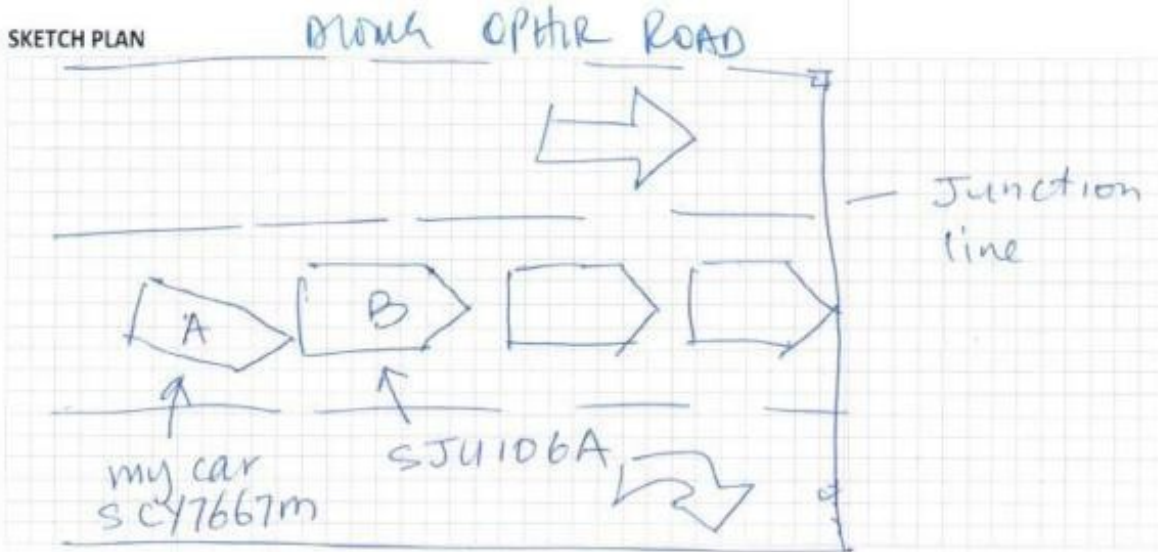 SKETCH PLAN
ALONG OPHIR ROAD
Junction
line
A
B
my car
SCY7667m
SJU106A